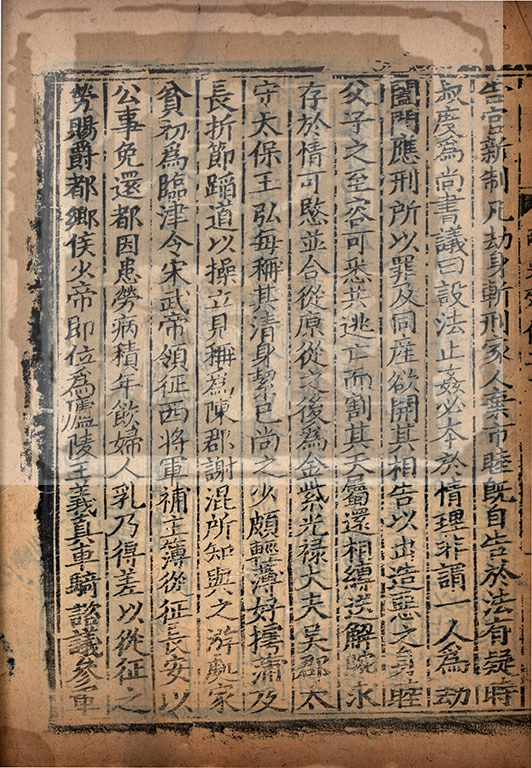 告官新制凡劫身斬刑家人棄市睦既自告於法有疑時
叔度為尚書議曰設法止姦必本於情理非謂一人為劫
闔門應刑所以罪及同產欲開其相告以出造惡之身睦
父子之至容可悉共逃亡而割其天屬還相縛送解腕求
存於情可愍並合從原從之後為金紫光祿大夫吳郡太
守太保王弘每稱其清身絜己尚之少頗輕薄好摴蒲及
長折節蹈道以操立見稱為陳郡謝混所知與之游處家
貧初為臨津令宋武帝領征西將軍補主簿從征長安以
公事免還都因患勞病積年飲婦人乳乃得差以從征之
勞賜爵都鄉侯少帝即位為廬陵王義真車騎諮議參軍